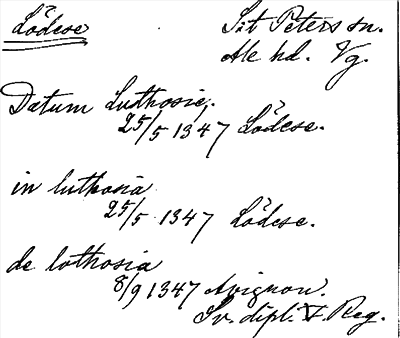 Lödese
S:t Peters sn.
Ale hd. Vg.
Datum Ludhosie,
25/5 1347 Lödese.
in luthosia
25/5 1347 Lödese.
de lothosia
8/9 1347 Avignon.
Sv. dipl. Reg.